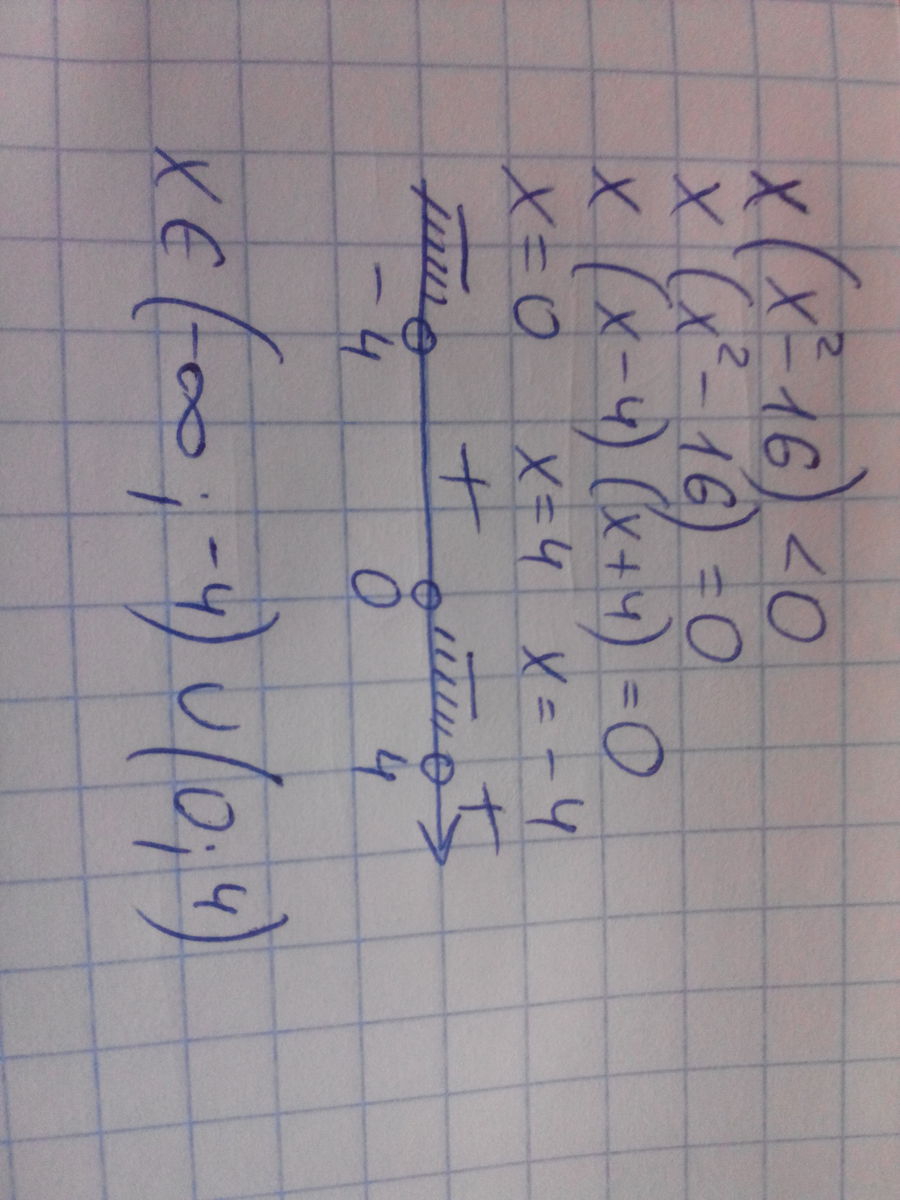 x(x²-16)<0
x(x²-16)=0
x(x-4)(x+4)=0
x=0 x=4 x=-4
- + - +
-4 0 4
x∈(-∞;-4)∪(0;4)